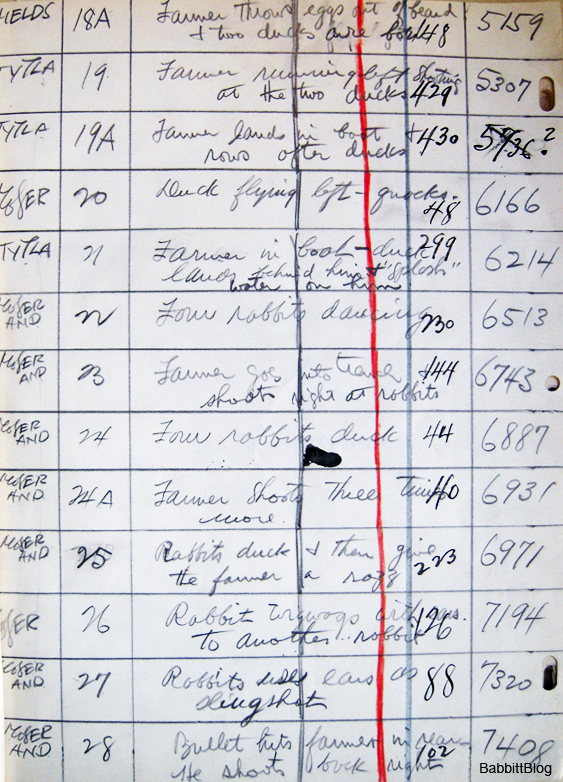 IELDS 18A Farmer throws eggs out of beard 48 5159
+ two ducks
TYTLA 19 Farmer running left shooting 429 5307
at the two ducks
TYTLA 19A Farmer lands in boat + 430 5736 ?
rows after ducks
20 Duck flying left - quacks. 48 6166
TYTLA 21 Farmer in boat - duck 299 6214
lands behind him + "splash"
water on him
AND. 22 Four rabbits dancing 230 6513
AND 23 Farmer goes into trance 144 6743
shoots right at rabbits
AND 24 Four rabbits duck 44 6887
AND 24A Farmer shoots three times 40 6931
more.
AND 25 Rabbits duck & then give 223 6971
the farmer a razz
26 Rabbit wigwags with ears. 126 7194
to another rabbit
AND. 27 Rabbits use ears as 88 7320
slingshot
AND 28 Bullet hits farmer in rear - 102 7408
He shoots back right
BabbittBlog